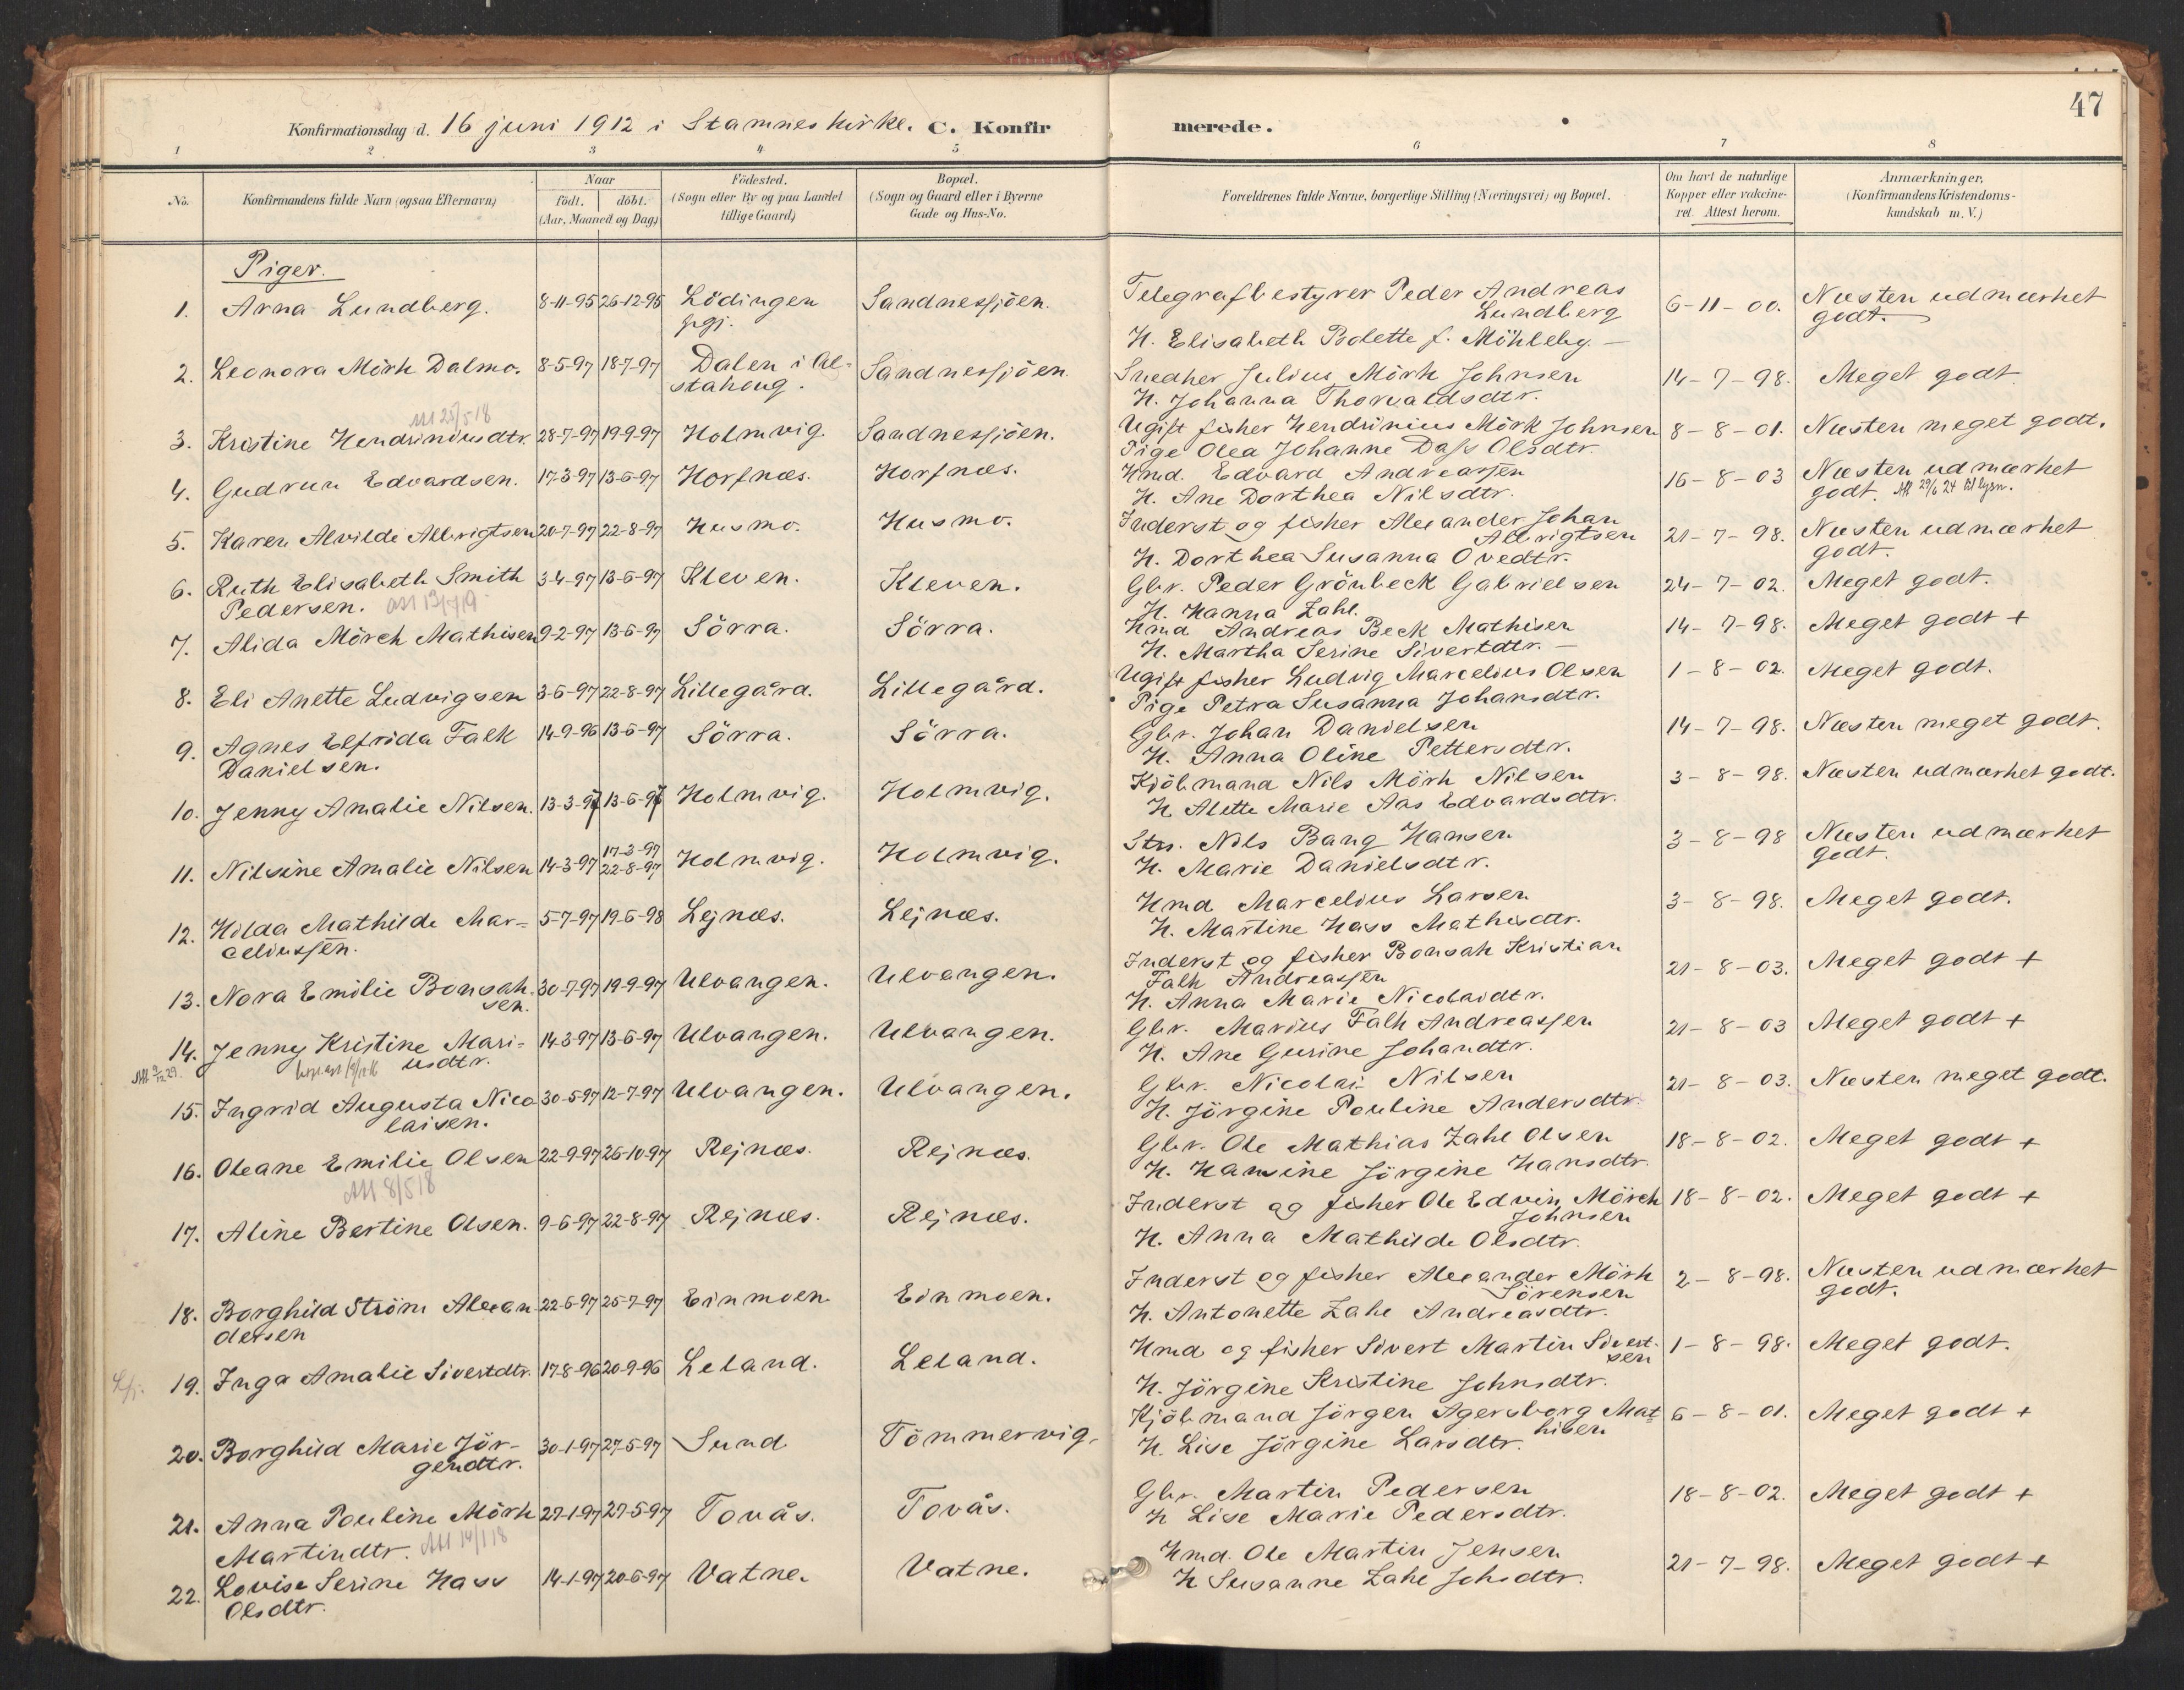 47
Konfirmationsdag d. 16 juni 1912 i Stamnes kirke. C. Konfirmerede.
1 2 3 4 5 6 7 8
No. Konfirmandens fulde Navn (ogsaa Efternavn) Naar födt. döbt. (Aar, Maaned og Dag) Födested. (Sogn eller By og paa Landet tillige Gaard) Bopæl. (Sogn og Gaard eller i Byerne Gade og Hus-No. Forældrenes fulde Navne, borgerlige Stilling (Næringsvei) og Bopæl. Om havt de naturlige Kopper eller vakcineret. Attest herom. Anmærkninger, (Konfirmandens Kristendomskundskab m. V.)
Piger.
1. Arna Lundberg. 8-11-95 26-12-95 Lödingen pgj. Sandnessjöen. Telegrafbestyrer Peder Andreas Lundberg 6-11-00. Næsten udmærket godt.
H. Elisabeth Bolette f. Möhleby. —
2. Leonora Mörk Dalmo. 8-5-97 18-7-97 Dalen i Alstahoug. Sandnessjöen. Snedker Julius Mörk Johnsen 14-7-98. Meget godt
H. Johanna Thorvaldsdtr.
Att 25/5 18
3. Kristine Hendriniusdtr. 28-7-97 19-9-97 Holmvig. Sandnessjöen. Ugift fisker Hendrinius Mörk Johnsen 8-8-01. Næsten meget godt.
Pige Olea Johanne Dass Olsdtr.
4. Gudrun Edvardsen. 17-3-97 13-6-97 Horfnæs. Horfnæs. Hmd. Edvard Andreassen 16-8-03 Næsten udmærket godt. Att 29/6 24 til lysn.
H. Ane Dorthea Nilsdtr.
5. Karen Alvilde Albrigtsen 20-7-97 22-8-97 Husmo. Husmo. Inderst og fisker Alexander Johan Albrigtsen 21-7-98. Næsten udmærket godt.
H. Dorthea Susanna Ovedtr.
6. Ruth Elisabeth Smith Pedersen. 3-4-97 13-6-97 Kleven. Kleven. Gbr. Peder Grönbeck Gabrielsen 24-7-02. Meget godt.
H. Hanna Zahl.
7. Alida Mörch Mathisen 9-2-97 13-6-97 Sörra. Sörra. Hmd Andreas Beck Mathisen 14-7-98. Meget godt +
H. Martha Serine Sivertdtr. —
8. Eli Anette Ludvigsen 3-6-97 22-8-97 Lillegård. Lillegård. Ugift fisker Ludvig Marcelius Olsen 1-8-02. Meget godt.
Pige Petra Susanna Johansdtr.
9. Agnes Elfrida Falk Danielsen. 14-9-96 13-6-97 Sörra. Sörra. Gbr. Johan Danielsen 14-7-98. Næsten meget godt.
H. Anna Oline Pettersdtr.
10. Jenny Amalie Nilsen. 13-3-97 13-6-97 Holmvig. Holmvig. Kjöbmand Nils Mörk Nilsen 3-8-98. Næsten udmærket godt.
H. Alette Marie Aas Edvardsdtr.
11. Nilsine Amalie Nilsen 14-3-97 17-3-97 22-8-97 Holmvig. Holmvig. Str. Nils Bang Hansen 3-8-98 Næsten udmærket godt.
H. Marie Danielsdtr.
12. Hilda Mathilde Marceliussen. 5-7-97 19-6-98 Lejnæs. Lejnæs. Hmd Marcelius Larsen 3-8-98. Meget godt.
H. Martine Hass Mathisdtr.
13. Nora Emilie Bonsaksen. 30-7-97 19-9-97 Ulvangen. Ulvangen. Inderst og fisker Bonsak Kristian Falk Andreassen 21-8-03. Meget godt +
H. Anna Marie Nicolaidtr.
14. Jenny Kristine Mariusdtr. 14-3-97 13-6-97 Ulvangen. Ulvangen. Gbr. Marius Falk Andreassen 21-8-03 Meget godt +
H. Ane Gurine Johandtr.
15. Ingrid Augusta Nicolaisen. 30-5-97 12-7-97 Ulvangen. Ulvangen. Gbr. Nicolai Nilsen 21-8-03. Næsten meget godt.
H. Jörgine Pouline Andersdtr.
16. Oleane Emilie Olsen 22-9-97 26-10-97 Rejnæs. Rejnæs. Gbr. Ole Mathias Zahl Olsen 18-8-02. Meget godt +
H. Hansine Jörgine Hansdtr.
Att 8/5 18
17. Aline Bertine Olsen. 9-6-97 22-8-97 Rejnæs. Rejnæs. Inderst og fisker Ole Edvin Mörch Johnsen 18-8-02. Meget godt +
H. Anna Mathilde Olsdtr.
18. Borghild Ström Alexandersen 22-6-97 25-7-97 Einmoen Einmoen. Inderst og fisker Alexander Mörk Sörensen 2-8-98. Næsten udmærket godt.
H. Antonette Zahl Andreasdtr.
19. Inga Amalie Sivertdtr. 17-8-96 20-9-96 Leland. Leland. Hmd og fisker Sivert Martin Sivertsen 1-8-98. Meget godt.
H. Jörgine Kristine Johnsdtr.
20. Borghild Marie Jörgendtr. 30-1-97 27-5-97 Sund Tömmervig. Kjöbmand Jörgen Agersborg Mathisen 6-8-01. Meget godt +
H. Lise Jörgine Larsdtr.
21. Anna Pouline Mörk Martindtr. Att 14/1 18 27-1-97 27-5-97 Tovås. Tovås. Gbr. Martin Pedersen 18-8-02. Meget godt +
H Lise Marie Pedersdtr.
22. Lovise Serine Hass Olsdtr. 14-1-97 20-6-97 Vatne. Vatne. Hmd. Ole Martin Jensen 21-7-98. Meget godt +
H Susanne Zahl Johsdtr.